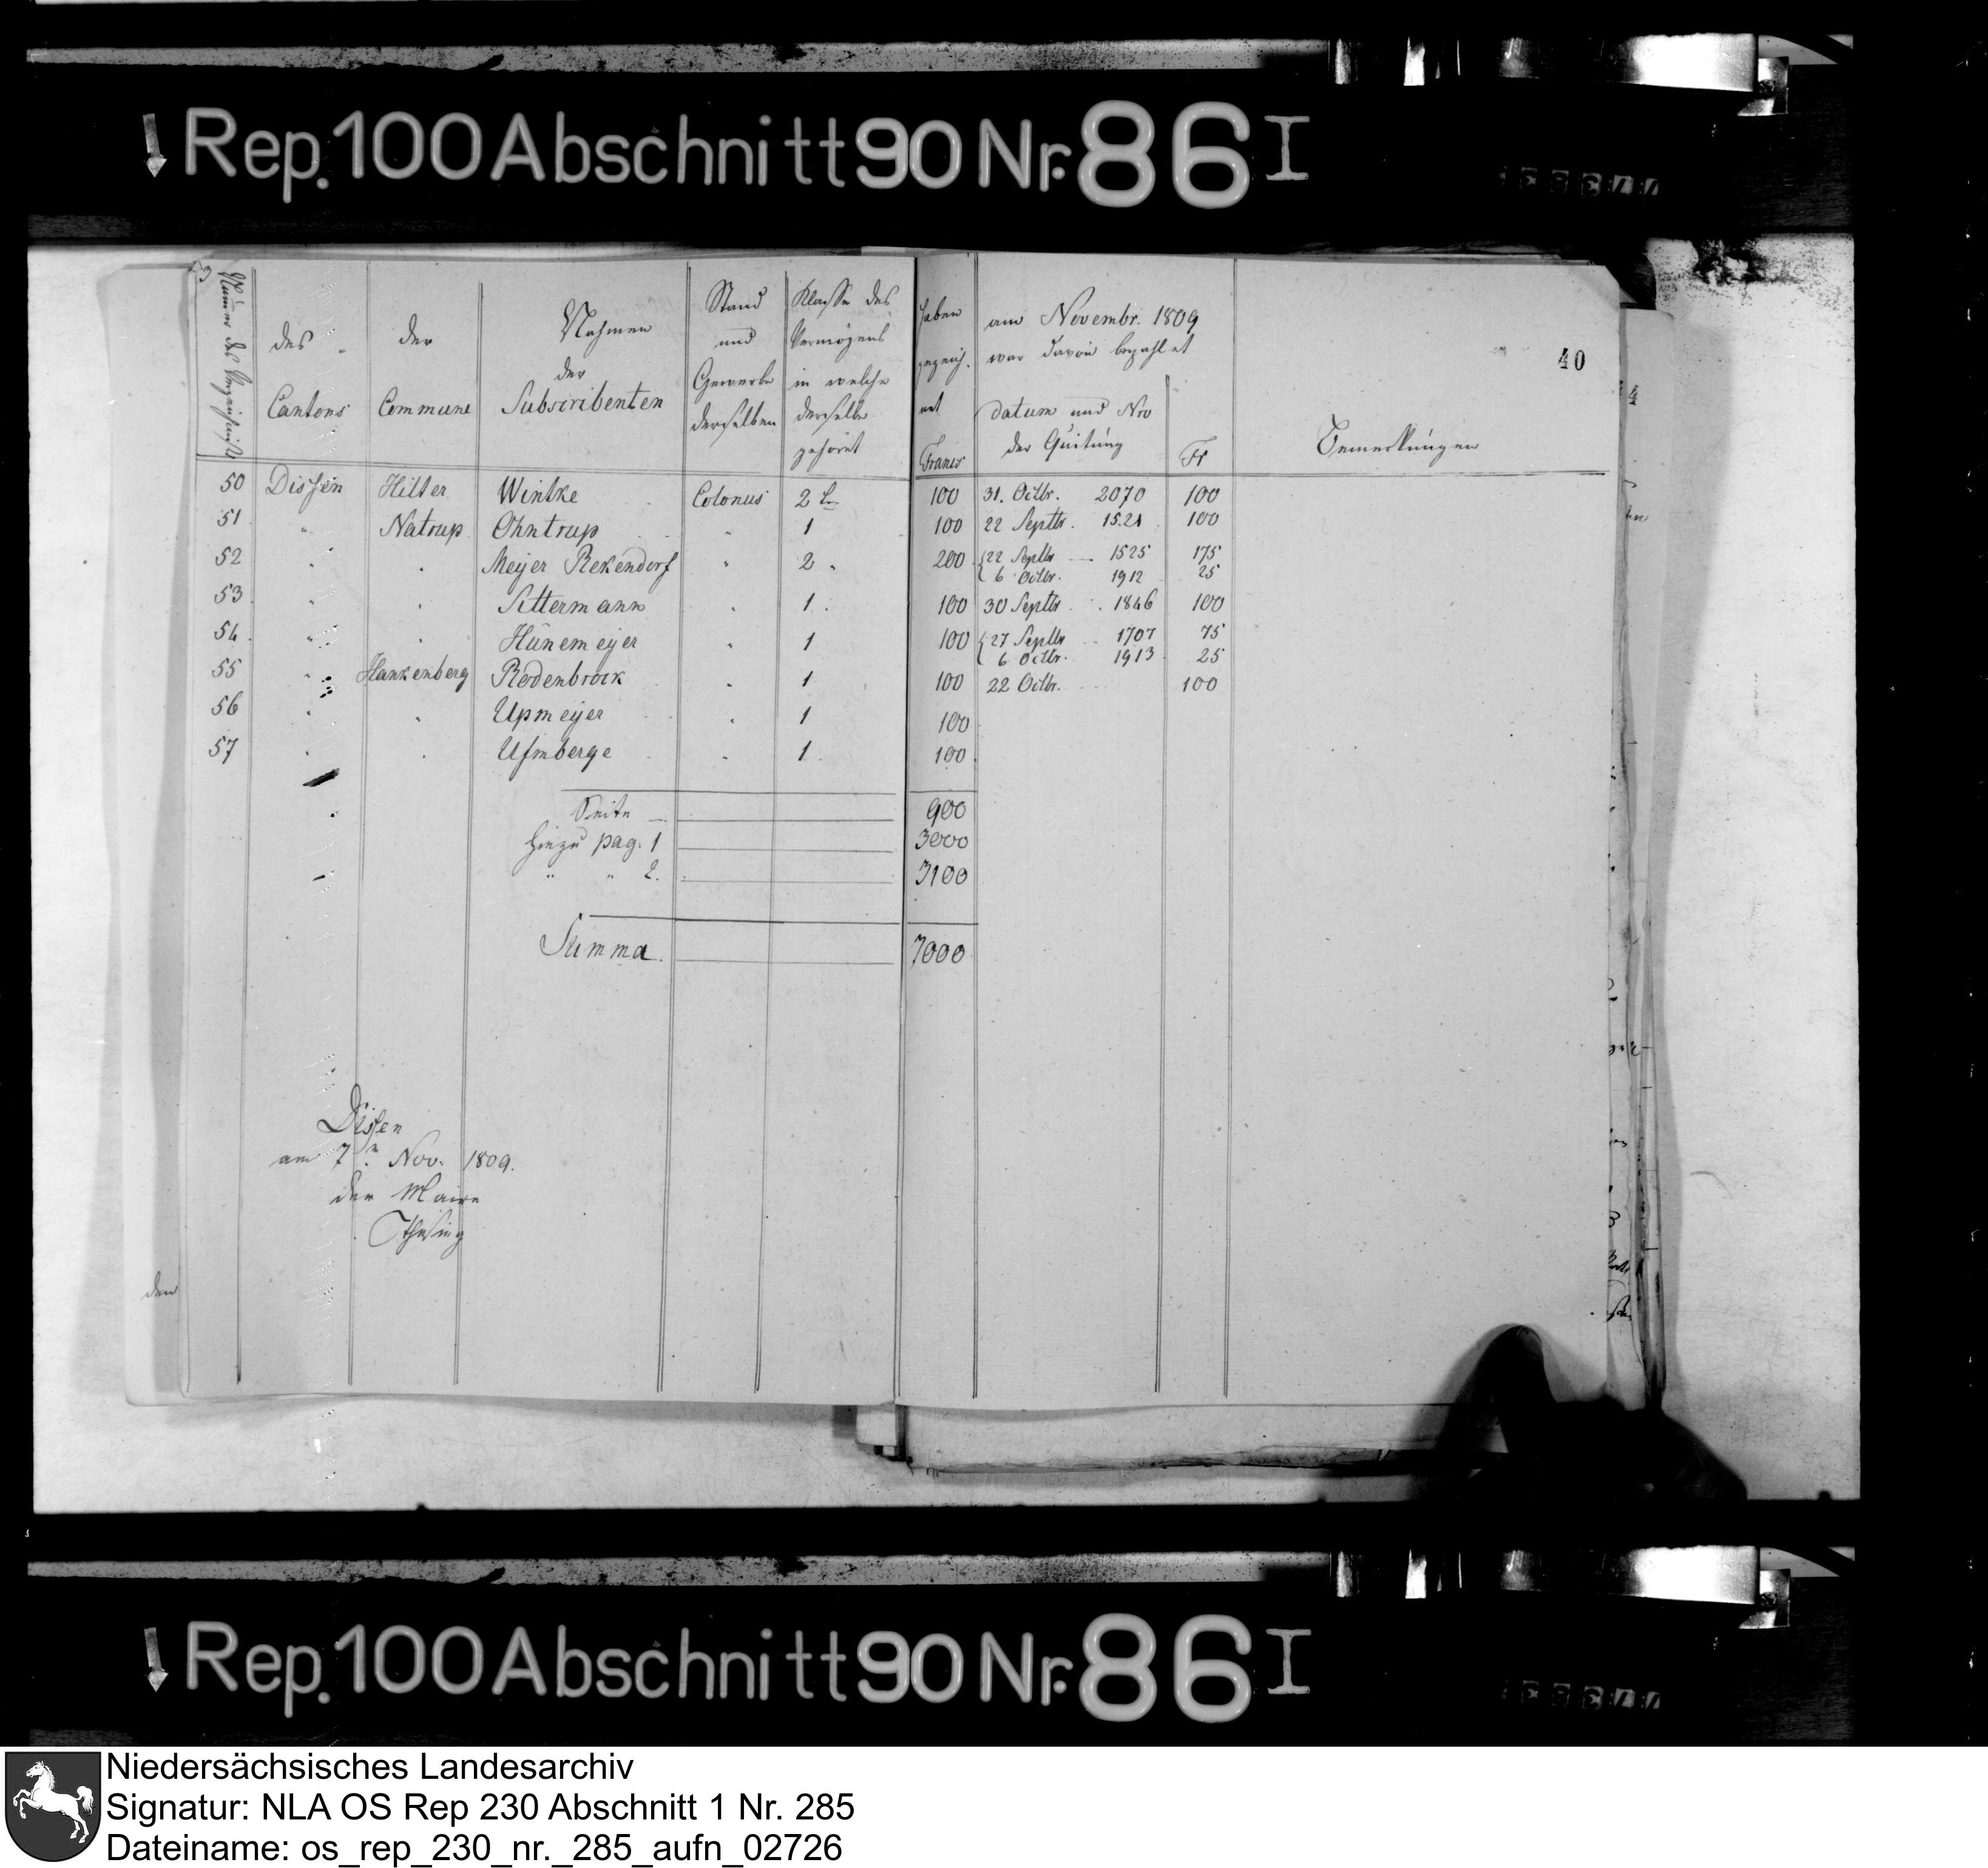 Rep. 100 Abschnitt 90 Nr. 86 I
40
Numer des Verzeichnißes
des Cantons
der Commune
Nahmen der Subscribenten
Stand und Gewerbe derselben
Klasse des Vermögens in welche derselbe gehöret
haben gezeichnet Francs
am Novembr. 1809 war davon bezahlet
datum und Nro der Quitung
Fr
Bemerkungen
50 Dissen Hilter Wintke Colonus 2 100 31. Octbr. 2070 100
51 " Natrup Ohntrup " 1 100 22 Septbr. 1521 100
52 " " Meyer Rekendorf " 2 200 { 22 Septbr — 1525 175
6 Octbr. 1912 25
53 " " Settermann " 1 100 30 Septbr 1846 100
54 " " Hünemeyer " 1 100 { 27 Septbr 1707 75
6 Octbr. 1913 25
55 " Hankenberg Redenbrock " 1 100 22 Octbr. 100
56 " " Upmeyer " 1 100
57 " " Ufmberge " 1 100
Seite — 900
Hiezu pag. 1 3000
" " 2. 3100
Summa. 7000
Dissen
am 7n. Nov. 1809.
der Maire
den
Rep. 100 Abschnitt 90 Nr. 86 I
Niedersächsisches Landesarchiv
Signatur: NLA OS Rep 230 Abschnitt 1 Nr. 285
Dateiname: os_rep_230_nr._285_aufn_02726